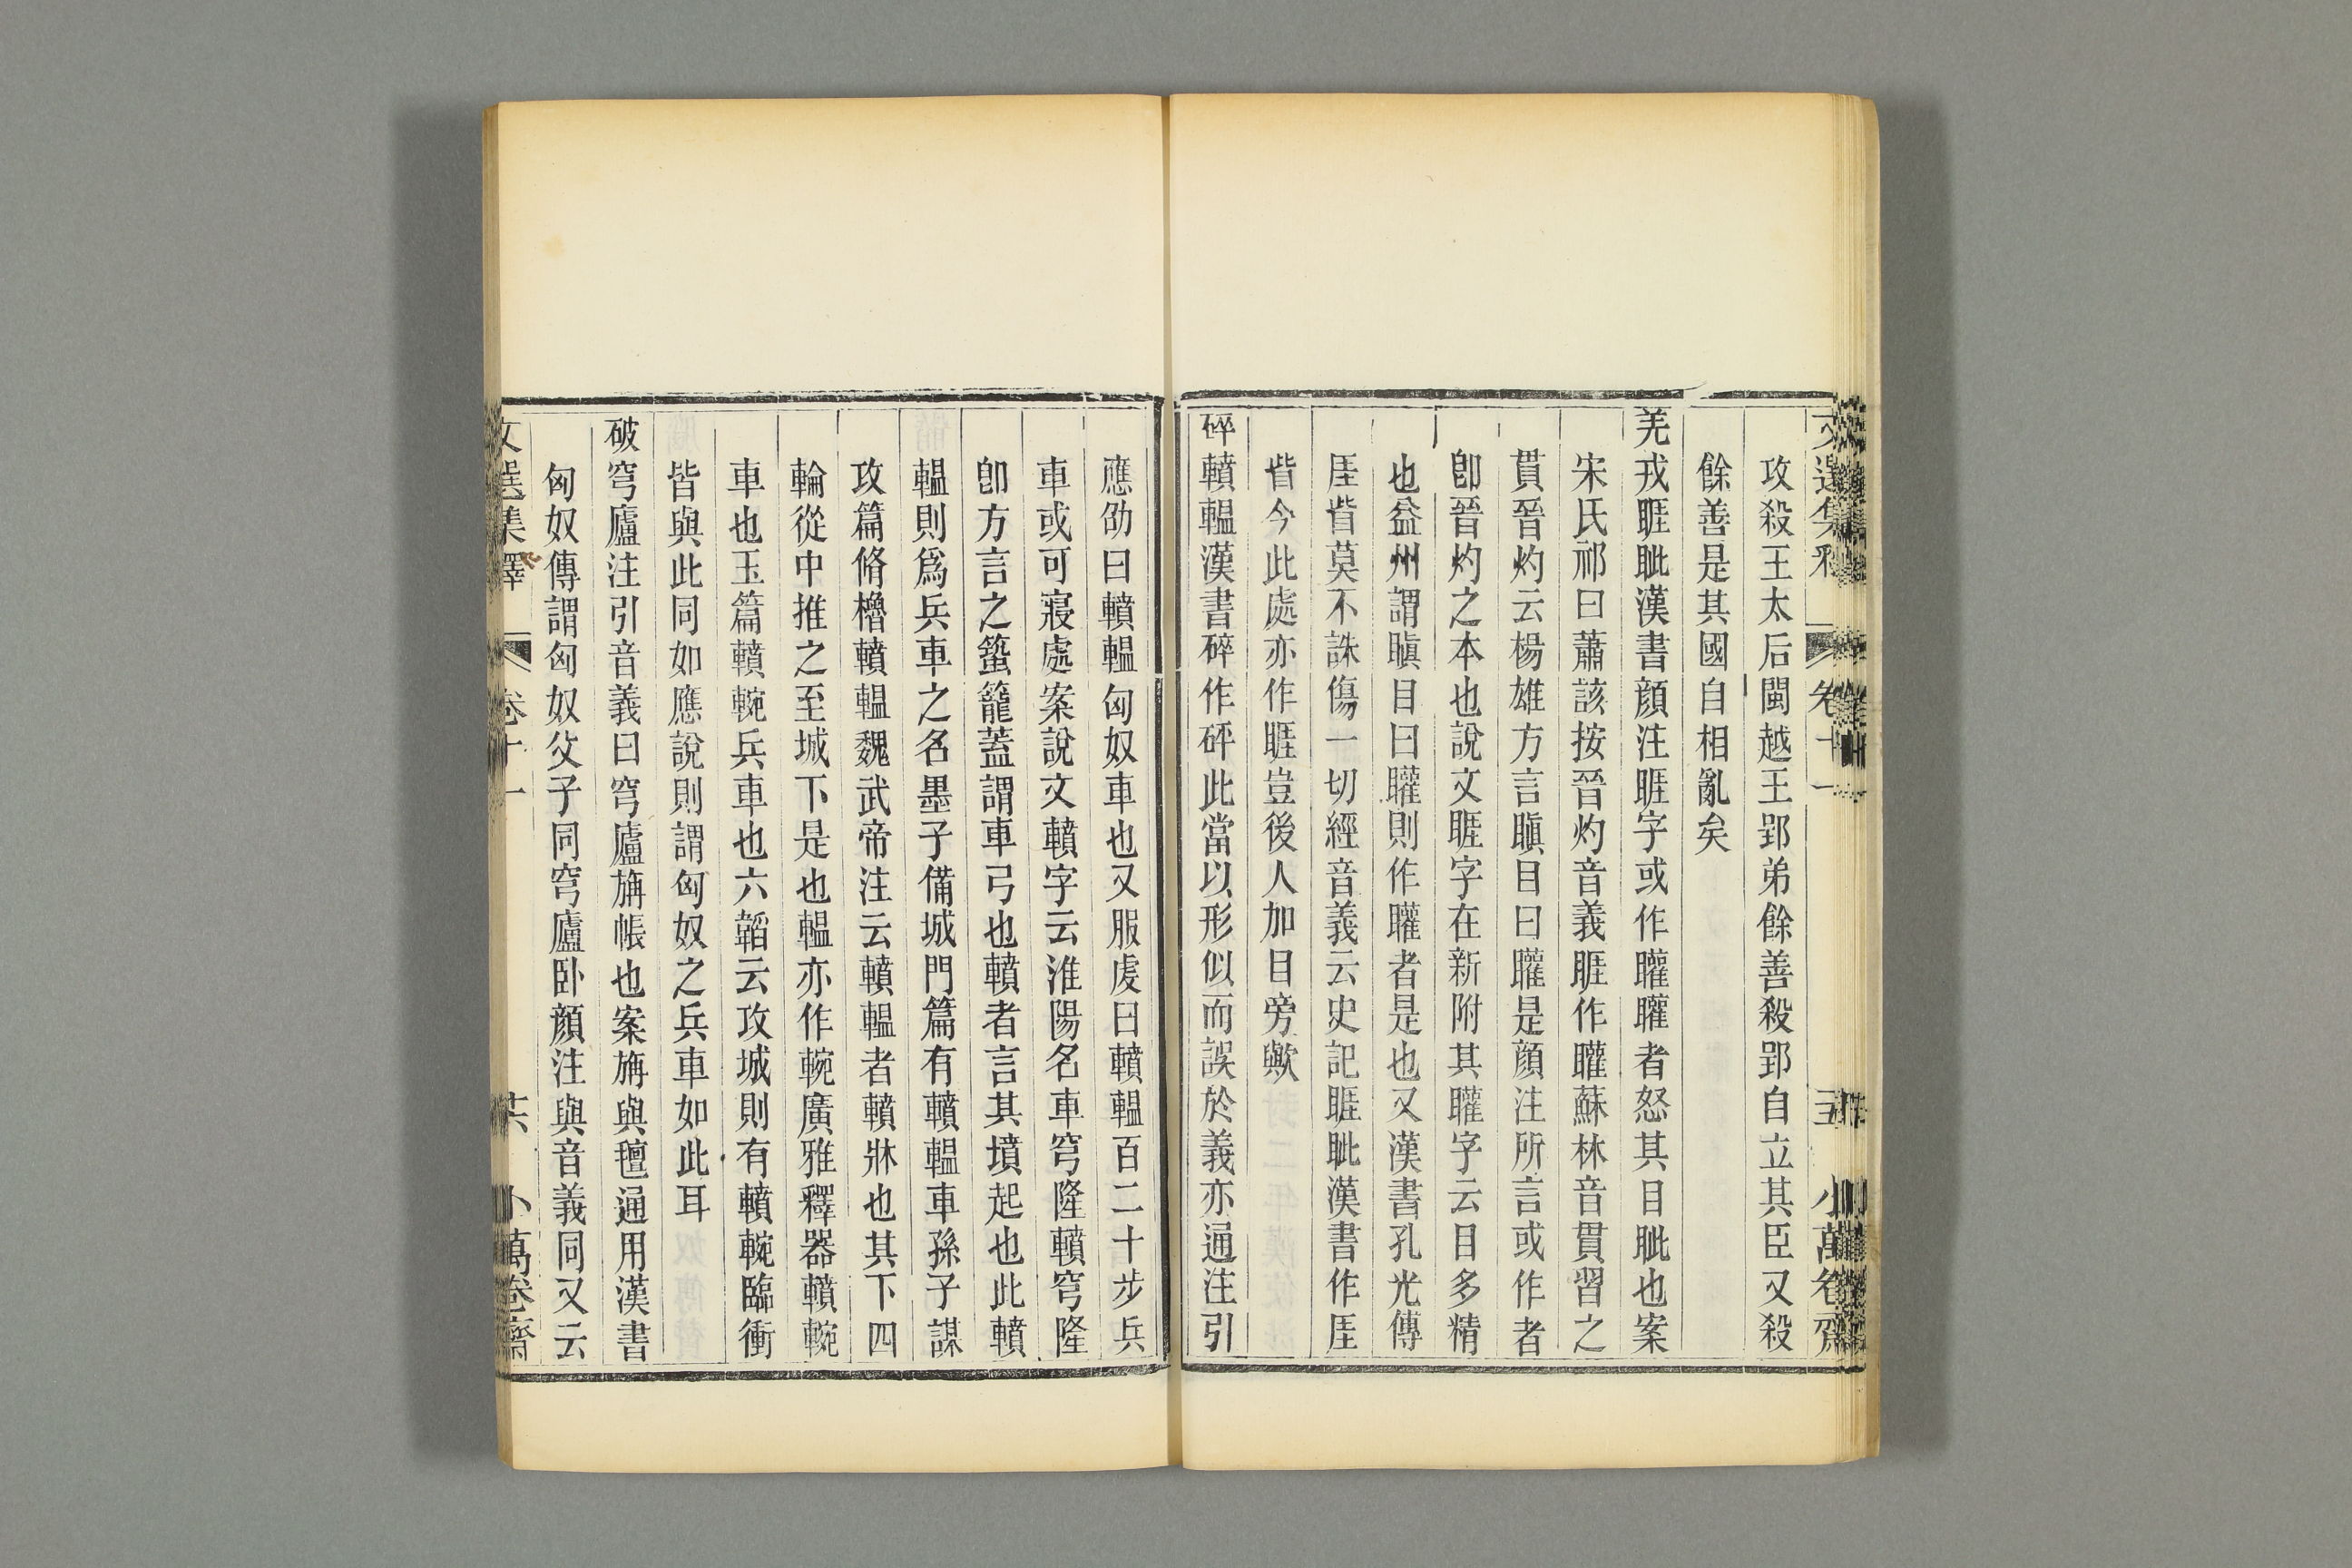 攻殺王太后閩越王郢弟餘善殺郢自立其臣又殺
餘善是其國自相亂矣
羌戎睚眦漢書顏注睚字或作矔矔者怒其目眦也案
宋氏祁曰蕭該按晉灼音義睚作矔蘇林音貫習之
貫晉灼云楊雄方言瞋目曰矔是顏注所言或作者
卽晉灼之本也說文睚字在新附其矔字云目多精
也益州謂瞋目曰矔則作矔者是也又漢書孔光傳
厓眥莫不誅傷一切經音義云史記睚眦漢書作厓
眥今此處亦作睚豈後人加目旁歟
碎轒轀漢書碎作砰此當以形似而誤於義亦通注引
應劭曰轒轀匈奴車也又服虔曰轒轀百二十步兵
車或可寢處案說文轒字云淮陽名車穹隆轒穹隆
卽方言之簦籠蓋謂車弓也轒者言其墳起也此轒
轀則爲兵車之名墨子備城門篇有轒轀車孫子謀
攻篇脩櫓轒轀魏武帝注云轒轀者轒牀也其下四
輪從中推之至城下是也轀亦作輓廣雅釋器轒輓
車也玉篇轒輓兵車也六韜云攻城則有轒輓臨衝
皆與此同如應說則謂匈奴之兵車如此耳
破穹廬注引音義曰穹廬旃帳也案旃與氊通用漢書
匈奴傳謂匈奴父子同穹廬臥顏注與音義同又云
文選集釋 卷十一 共 小萬卷齋